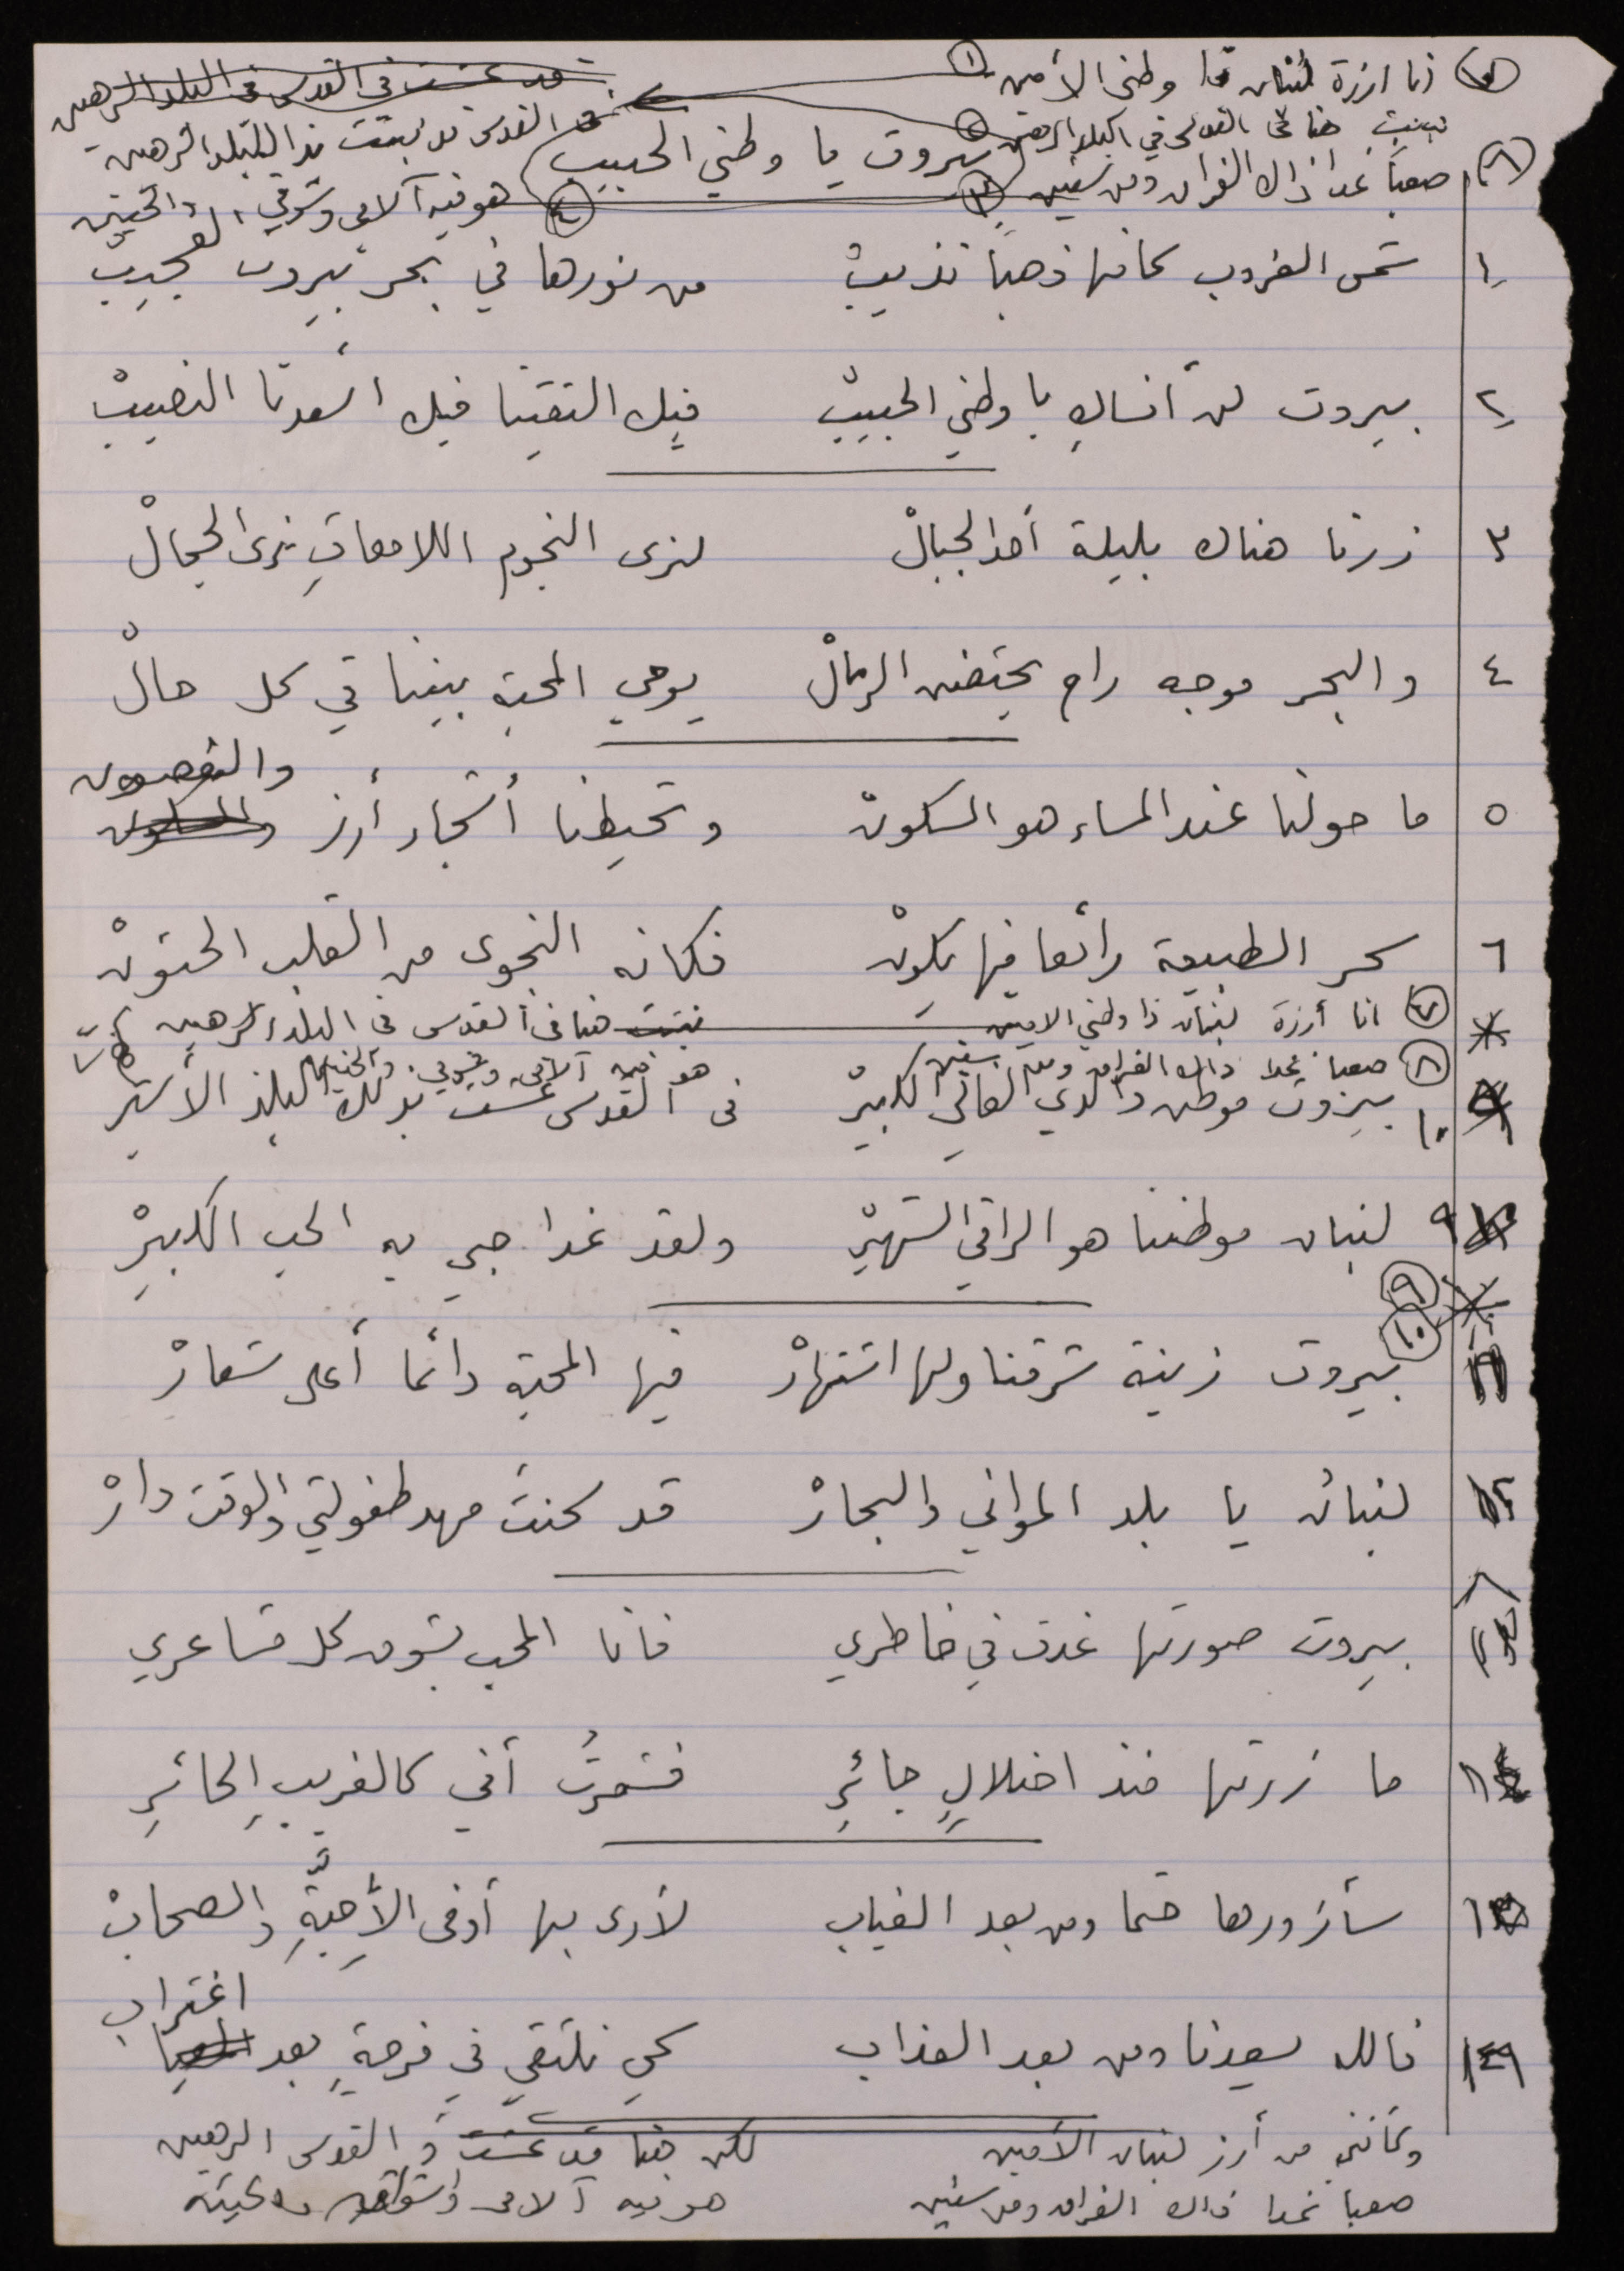 انا ارزة لبنان ذا وطني الأمين ١
قد عشت في القدس في البلد الرهين
نبتت هنا في القدس في البلد الرهين
في القدس قد نبتت بذا البلد الرهين
بيروت يا وطني الحبيب
٦ صعبا غدا ذاك الفراق ومن سنين ٣
٤ هو فيه آلامي وشوقي والحنين
١ شمس الغروب كأنها ذهبًا تذيبْ من نورها في بحر بيروت العجيبْ
٢ بيروت لن أنساكِ يا وطني الحبيبْ فيك التقينا فيك أسعدنا النصيبْ
٣ زرنا هناك بليلة أحد الجبالْ لنرى النجوم اللامعاتِ نرى الجمالْ
٤ والبحر موجه راح يحتضن الرمالْ يوحي المحبة بيننا في كل حالْ
والغصون
٥ ما حولنا عند المساء هو السكونْ وتحيطنا أشجار أرز
٦ سحر الطبيعة رائعا فيها يكونْ فكانه النجوى من القلب الحنونْ
٧ انا أرزة لبنان ذا وطني الامين نبتت هنا في القدس في البلد الرهين
٨ صعبا غدا ذاك الفراق ومن سنين هو فيه آلامي وشوقي والحنين
١٠ بيروت موطن والدي الغالي الكبيرْ في القدس عشت بذلك البلد الأسير
٩ لبنان موطننا هو الراقي الشهيْر ولقد غدا حبي به الحب الكبيرْ
٩
١٠
١١ بيروت زينة شرقنا ولها اشتهارْ فيها المحبة دائما أعلى شعارْ
١٢ لبنان يا بلد المواني والبحارْ قد كنتَ مهد طفولتي والوقت دارْ
بيروت صورتها غدت في خاطري فانا المحب بشوق كل مشاعري
ما زرتها منذ احتلالٍ جائرِ فشعرتُ أني كالغريبِ الحائرِ
سأزورها حتما ومن بعد الغياب لأرى بها أوفى الأحبَّةِ والصحابْ
اغتراب
فالله يسعدنا ومن بعد العذاب كي نلتقي في فرحةٍ بعد
وكأنني من أرز لبنان الأمين لكن هنا قد عشت في القدس الرهين
صعبا غدا ذاك الفراق ومن سنين هو فيه آلامي